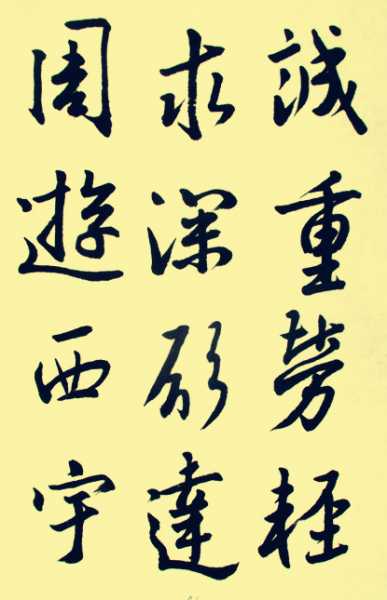 誠重勞輕
求深願達
周遊西宇